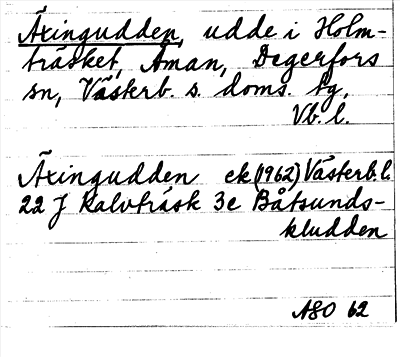 Äxingudden, udde i Holm-
träsket, Åman, Degerfors
sn, Västerb. s. doms. tg,
Vb. l.
Äxingudden ek (1962) Västerb. l.
22 J Kalvträsk 3e Båtsunds-
kludden
ASO 62